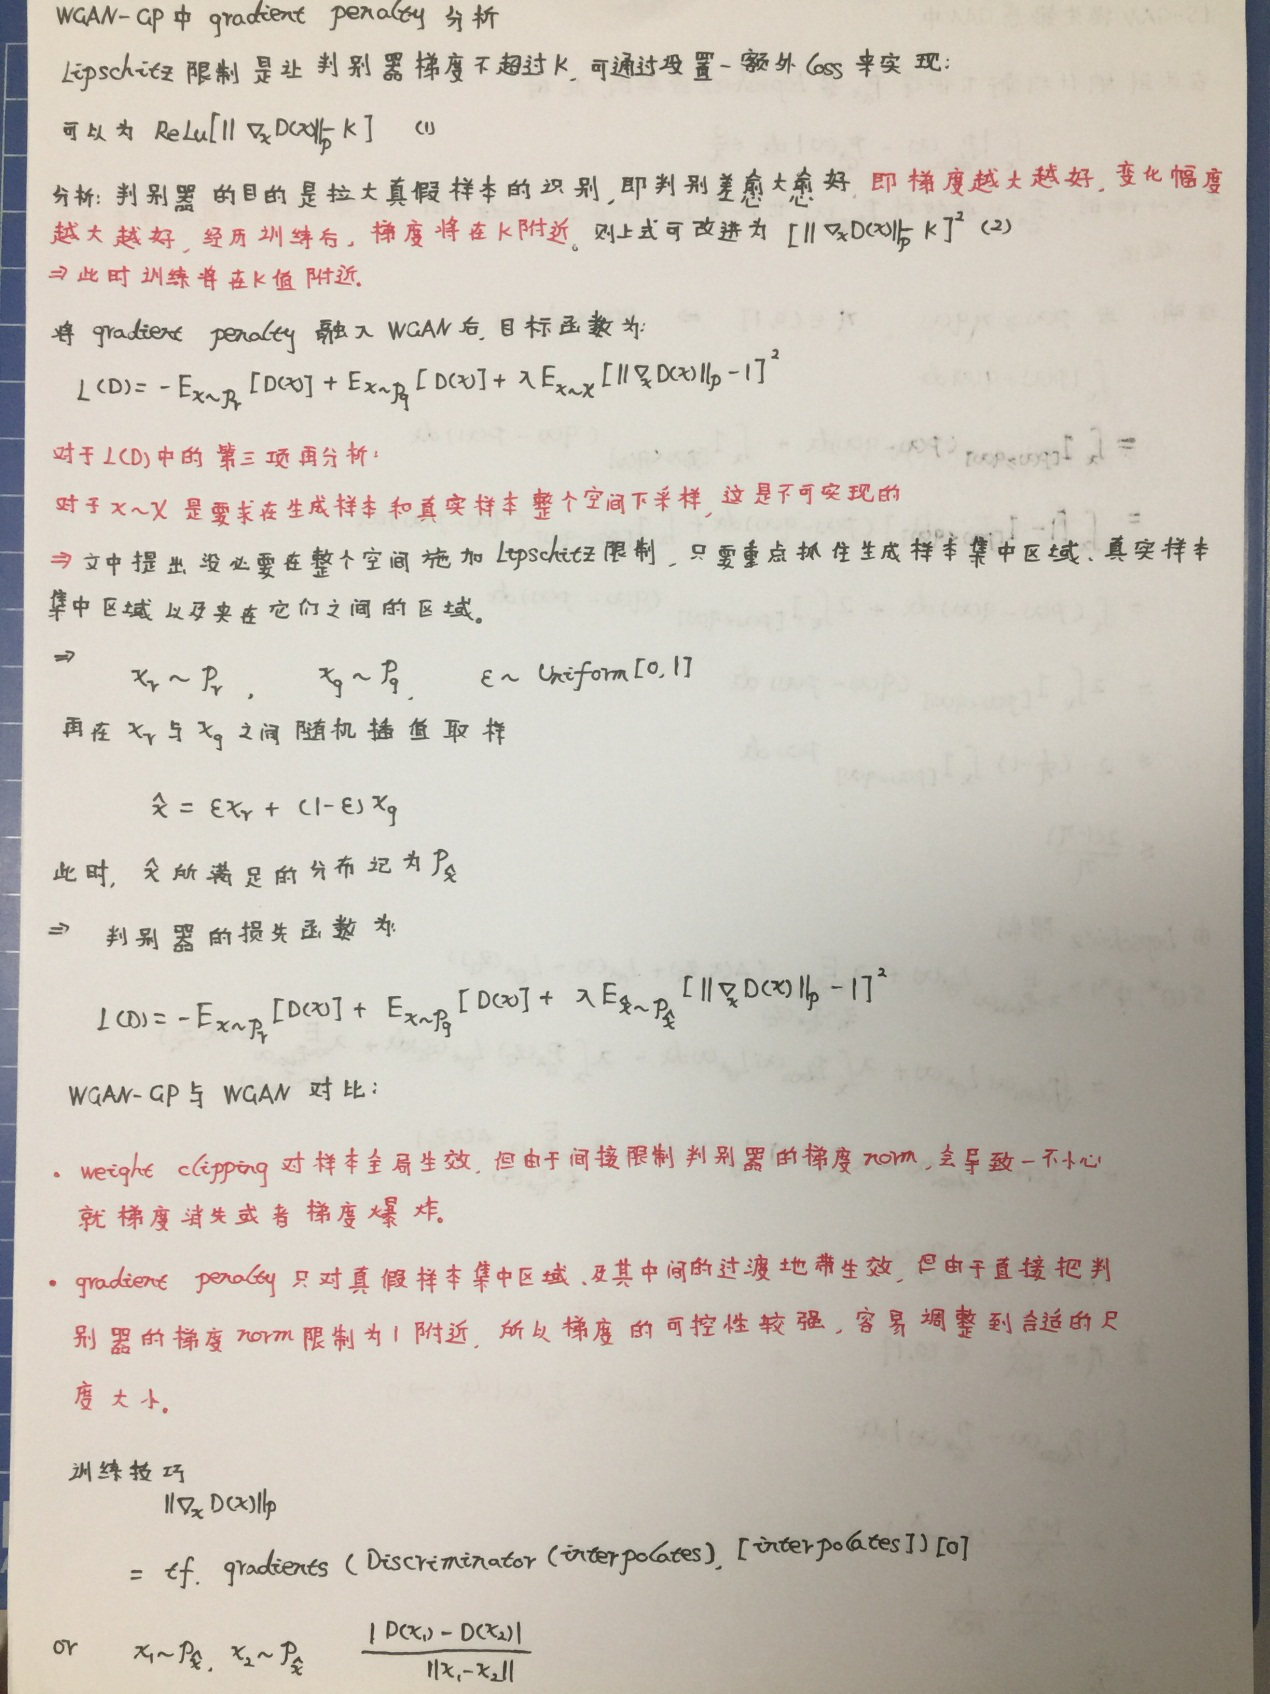 WGAN-GP中 gradient penalty 分析
Lipschitz 限制是让判别器梯度不超过K, 可通过设置一额外loss来实现:
可以为 ReLu[||∇ₓD(x)||ₚ - K] (1)
分析: 判别器的目的是拉大真假样本的识别, 即判别差愈大愈好, 即梯度越大越好, 变化幅度
越大越好, 经历训练后, 梯度将在K附近。则上式可改进为 [||∇ₓD(x)||ₚ - K]² (2)
⇒ 此时训练将在K值附近.
将 gradient penalty 融入WGAN后, 目标函数为:
L(D) = -E_{x∼Pr}[D(x)] + E_{x∼Pg}[D(x)] + λE_{x∼χ}[||∇ₓD(x)||ₚ - 1]²
对于L(D)中的第三项再分析:
对于 x∼χ 是要求在生成样本和真实样本整个空间下采样, 这是不可实现的
⇒ 文中提出没必要在整个空间施加Lipschitz限制, 只要重点抓住生成样本集中区域、真实样本
集中区域以及夹在它们之间的区域。
⇒ xr ∼ Pr, xg ∼ Pg, ε ∼ Uniform[0,1]
再在 xr 与 xg 之间随机插值取样
x̂ = εxr + (1-ε)xg
此时, x̂ 所满足的分布记为 P_x̂
⇒ 判别器的损失函数为:
L(D) = -E_{x∼Pr}[D(x)] + E_{x∼Pg}[D(x)] + λE_{x̂∼P_x̂}[||∇ₓD(x)||ₚ - 1]²
WGAN-GP与 WGAN 对比:
· weight clipping 对样本全局生效, 但由于间接限制判别器的梯度norm, 会导致一不小心
就梯度消失或者梯度爆炸。
· gradient penalty 只对真假样本集中区域、及其中间的过渡地带生效, 但由于直接把判
别器的梯度norm限制为1附近, 所以梯度的可控性较强, 容易调整到合适的尺
度大小。
训练技巧
||∇ₓD(x)||ₚ
= tf. gradients (Discriminator (interpolates), [interpolates])[0]
or x₁∼P_x̂, x₂∼P_x̂ |D(x₁) - D(x₂)| / ||x₁-x₂||